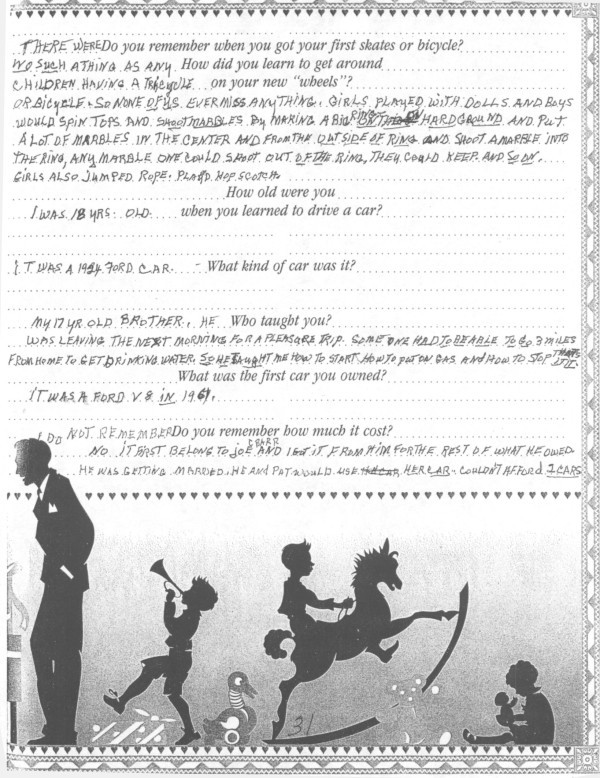 THERE WERE Do you remember when you got your first skates or bicycle?
NO SUCH A THING AS ANY How did you learn to get around
CHILDREN HAVING A TRICYCLE on your new "wheels"?
OR BICYCLE. SO NONE OF US EVER MISS ANYTHING. GIRLS PLAYED WITH DOLLS AND BOYS
WOULD SPIN TOPS AND SHOOT MARBLES BY MAKING A BIG RING ON HARD GROUND AND PUT
A LOT OF MARBLES IN THE CENTER AND FROM THE OUTSIDE OF RING AND SHOOT A MARBLE INTO
THE RING, ANY MARBLE ONE COULD SHOOT OUT OF THE RING, THEY COULD KEEP. AND SO ON.
GIRLS ALSO JUMPED ROPE. PLAYD HOP SCOTCH.
How old were you
I WAS 18 YRS. OLD when you learned to drive a car?
IT WAS A 1924 FORD CAR. What kind of car was it?
MY 17 YR OLD BROTHER. HE Who taught you?
WAS LEAVING THE NEXT MORNING FOR A PLEASURE TRIP. SOME ONE HAD TO BE ABLE TO GO 3 MILES
FROM HOME TO GET DRINKING WATER. SO HE TAUGHT ME HOW TO START HOW TO PUT ON GAS AND HOW TO STOP THATS IT.
What was the first car you owned?
IT WAS A FORD V8 IN 1961.
I DO NOT REMEMBER Do you remember how much it cost?
NO. IT FIRST BELONG TO JOE AND I GOT IT FROM HIM FOR THE REST OF WHAT HE OWED.
HE WAS GETTING MARRIED. HE AND PAT WOULD USE HER CAR. COULDN'T AFFORD 2 CARS
31